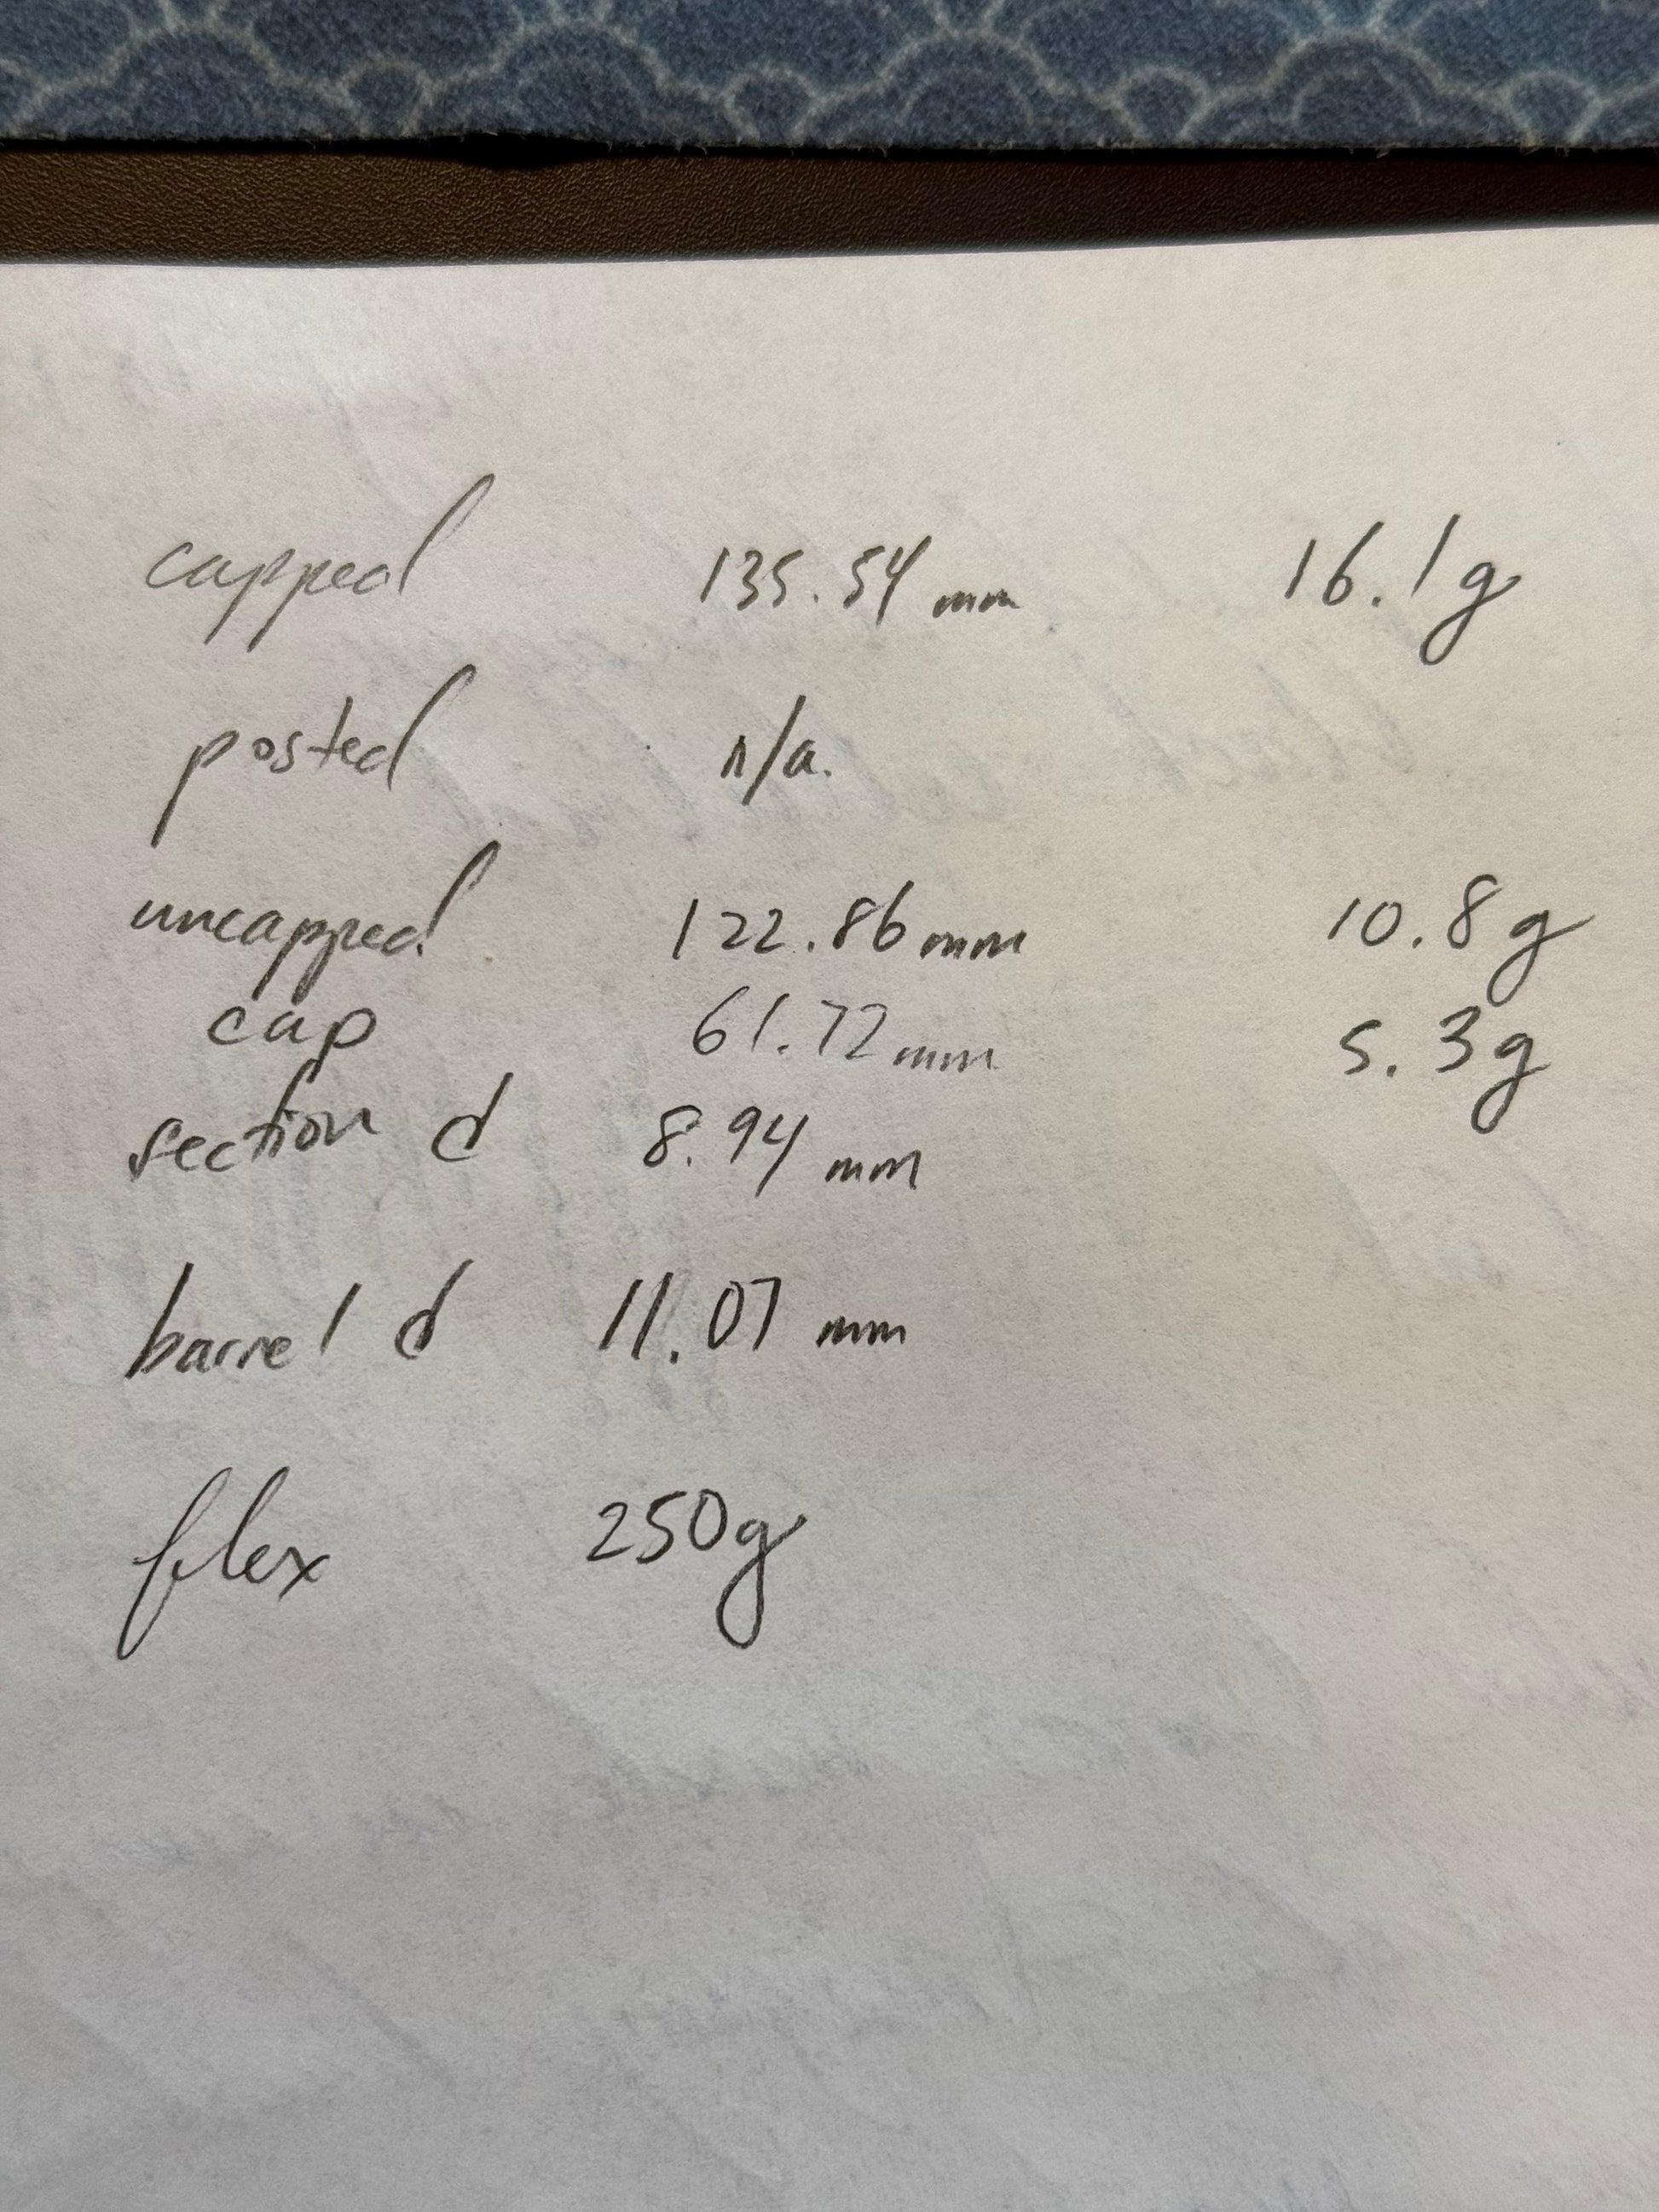 capped 135.54 mm 16.1g
posted n/a.
uncapped 122.86 mm 10.8g
cap 61.72 mm 5.3g
section d 8.94 mm
barrel d 11.07 mm
flex 250g